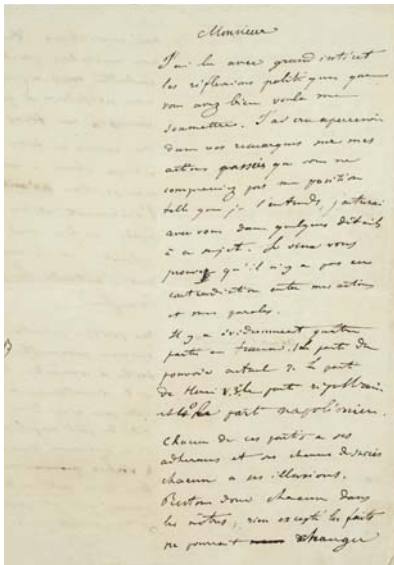 Monsieur
J'ai lu avec grand intéret
les réflexions politiques que
vous avez bien voulu me
soumettre. J'ai cru apercevoir
dans vos remarques sur mes
actions passées que vous ne
compreniez pas ma position
telle que je l'entends, j'entrerai
avec vous dans quelques détails
à ce sujet. Je veux vous
prouver qu'il n'y a pas eu
contradiction entre mes actions
et mes paroles.
Il y a évidemment quatre
partis en France. 1 le parti du
pouvoir actuel 2. le parti
de Henri V. 3 le parti républicain
et 4º le parti napoléonien.
Chacun de ces partis a ses
adherens et ses chances de succès
chacun a ses illusions.
Restons donc chacun dans
les nôtres, rien excepté les faits
ne pourrait changer